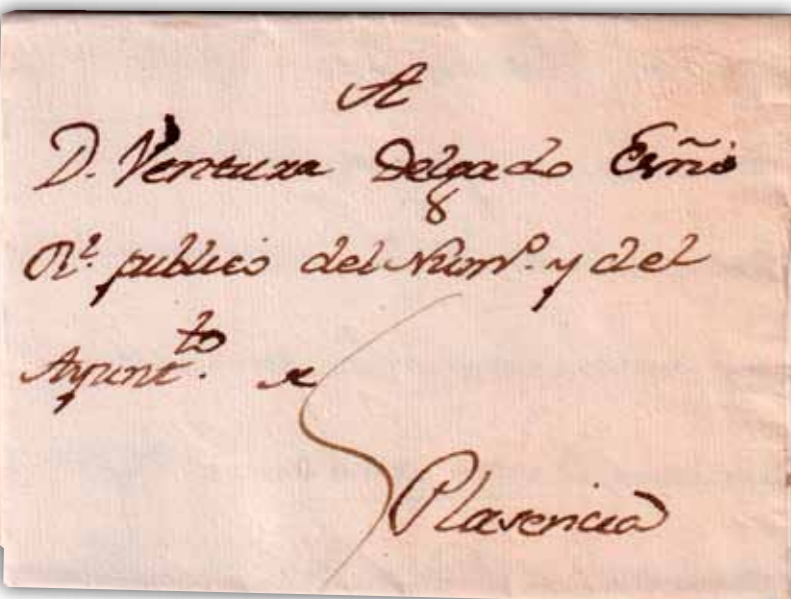 A
D. Ventura Delgado Esñō
Rˡ. publico del Numº. y del
Ayuntᵗᵒ. de
Plasencia